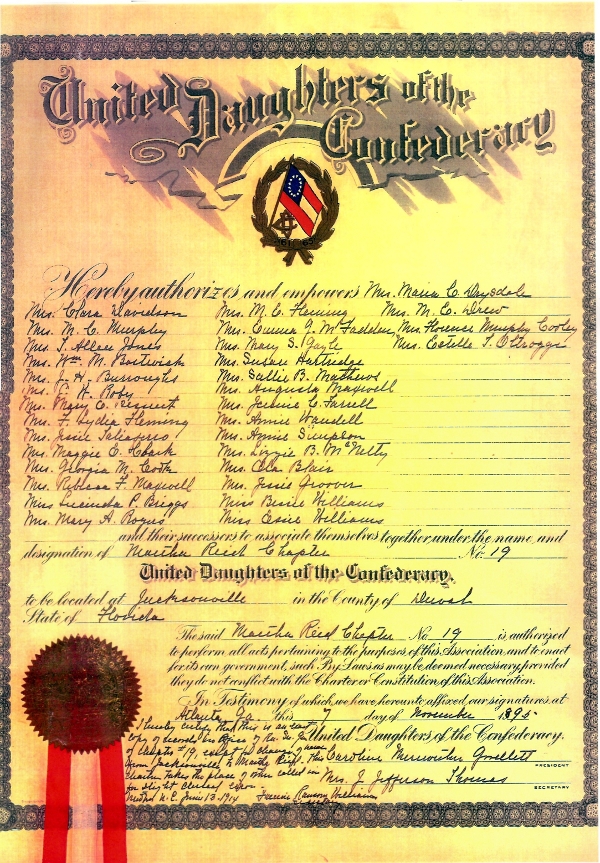 United Daughters of the
Confederacy
61 65
Hereby authorizes and empowers Mrs. Maria C. Drysdale
Mrs. Clara Davidson Mrs. M. C. Fleming Mrs. M. E. Drew
Mrs. M. C. Murphy Mrs. Emma G. McFadden Mrs. Florence Murphy Cooley
Mrs. T. Allan Jones Mrs. Mary S. Gayle Mrs. Estelle T.
Mrs. Wm. M. Bostwick Mrs. Susan Hartridge
Mrs. Burroughs Mrs. Sallie B. Mathews
Mrs. Roby Mrs. Augusta Maxwell
Mrs. Mary E. Mrs. Jennie C. Farrell
Mrs. F. Lydia Fleming Mrs. Annie Wardell
Mrs. Jessie Taliaferro Mrs. Annie Simpson
Mrs. Maggie E. Clark Mrs. Lizzie B. McNelty
Mrs. Georgia M. Mrs. Ola Blair
Mrs. Rebecca F. Maxwell Mrs. Jessie Groover
Miss Lucinda P. Briggs Miss Bessie Williams
Mrs. Mary A. Miss Essie Williams
and their successors to associate themselves together, under the name and
designation of Martha Reid Chapter No. 19
United Daughters of the Confederacy.
to be located at Jacksonville in the County of Duval
State of Florida
The said Martha Reid Chapter No 19 is authorized
to perform all acts pertaining to the purposes of this Association, and to enact
for its own government, such By-Laws as may be deemed necessary, provided
they do not conflict with the Charter or Constitution of this Association.
In Testimony of which, we have hereunto affixed our signatures, at
Atlanta Ga. this 7 day of November 1895
I hereby certify that this is an exact
United Daughters of the Confederacy.
copy of records
of Chapter #19, except in change of name
from Jacksonville to Martha Reid. This
Caroline Meriwether Goodlett
PRESIDENT
charter takes the place of one called in
Mrs. J. Jefferson Thomas
SECRETARY
for slight clerical error
June 13-1914 Fannie Ransom Williams